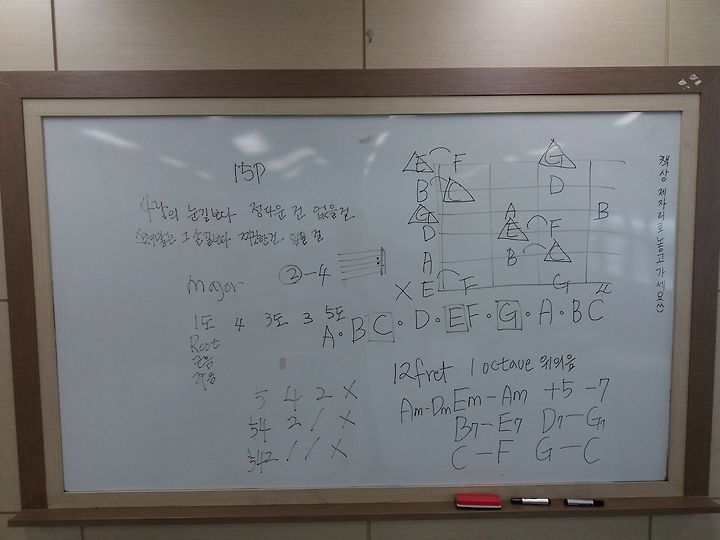 15P
사랑의 눈길보다 정다운 건 없을걸
그 손끝보다 짜릿한건 있을 걸
Major ②-4
1도 4 3도 3 5도
Root
근음
E F G
B C D
G A B
D E F
A B C
X E F G
A·BC·D·EF·G·A·BC
12fret 1 octave 위의음
Am-Dm Em-Am +5 -7
B7-E7 D7-G7
C-F G-C
5 4 2 X
54 2 / X
542 / / X
책상 제자리로 놓고 가세요